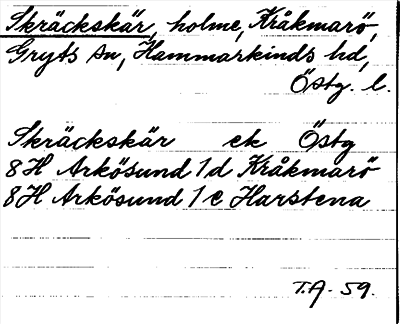 Skräckskär, holme, Kråkmarö,
Gryts sn, Hammarkinds hd,
Östg. l.
Skräckskär ek Östg
8H Arkösund 1d Kråkmarö
8H Arkösund 1e Harstena
T.A. 59.